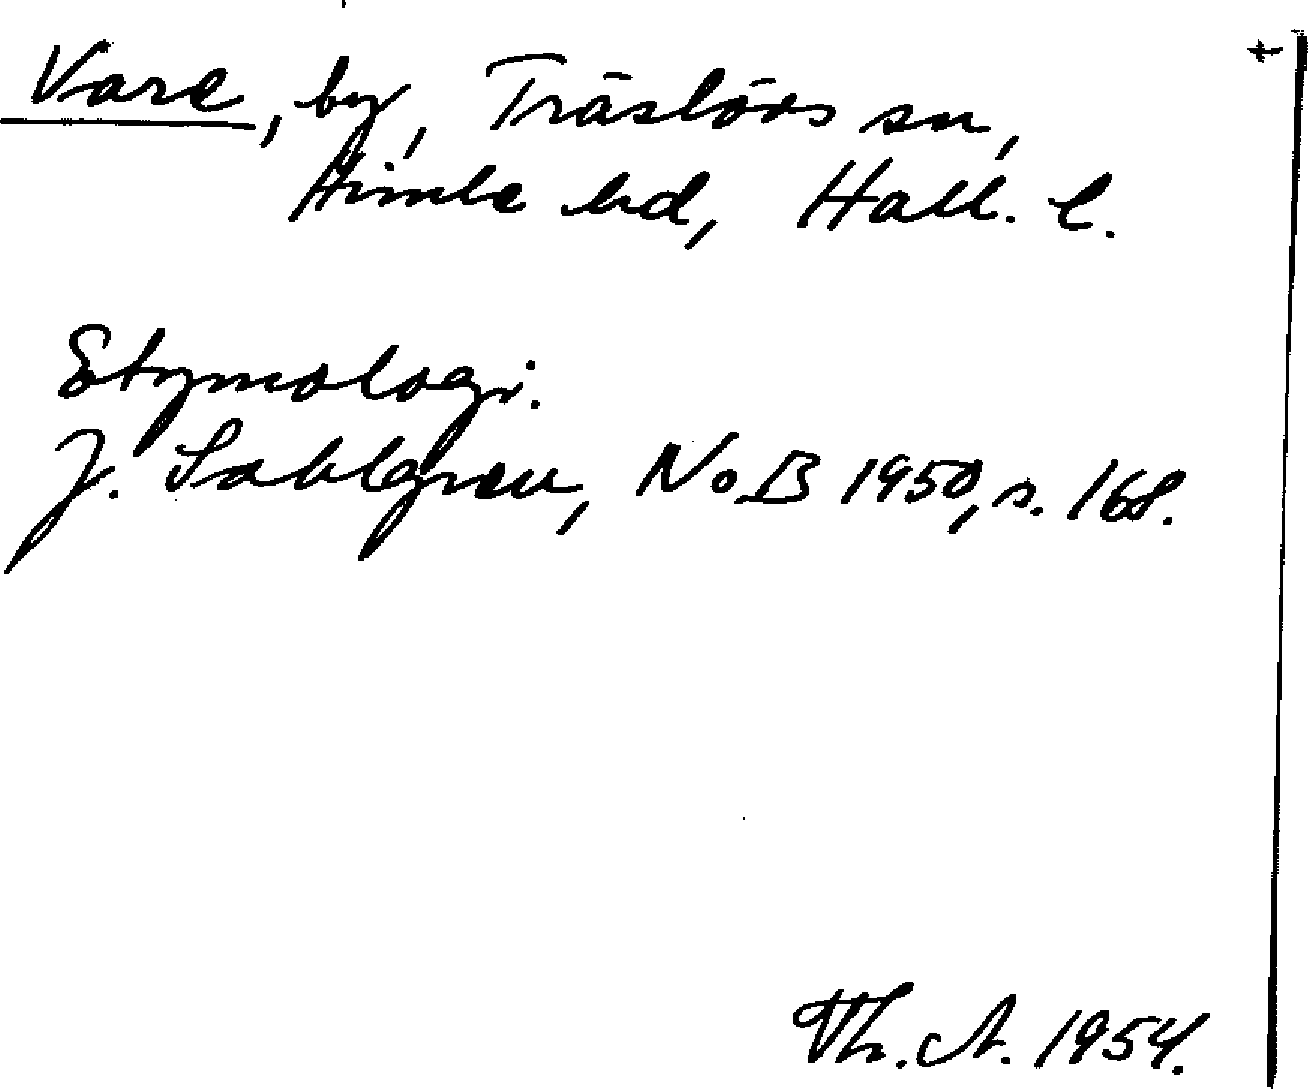 Vare, by, Träslövs sn, +
Himle hd, Hall. l.
Etymologi.
J. Sahlgren, NoB 1950, s. 168.
Th. A. 1954.